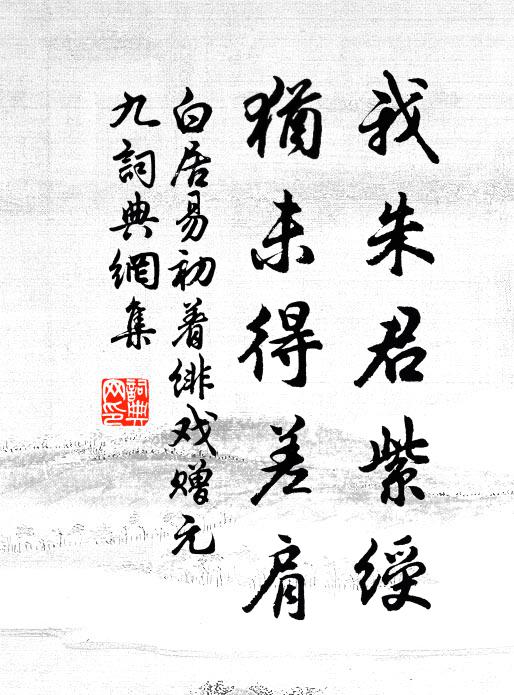 我朱君紫綬
猶未得差肩
白居易初着緋戏贈元
九詞典網集
詞典网印